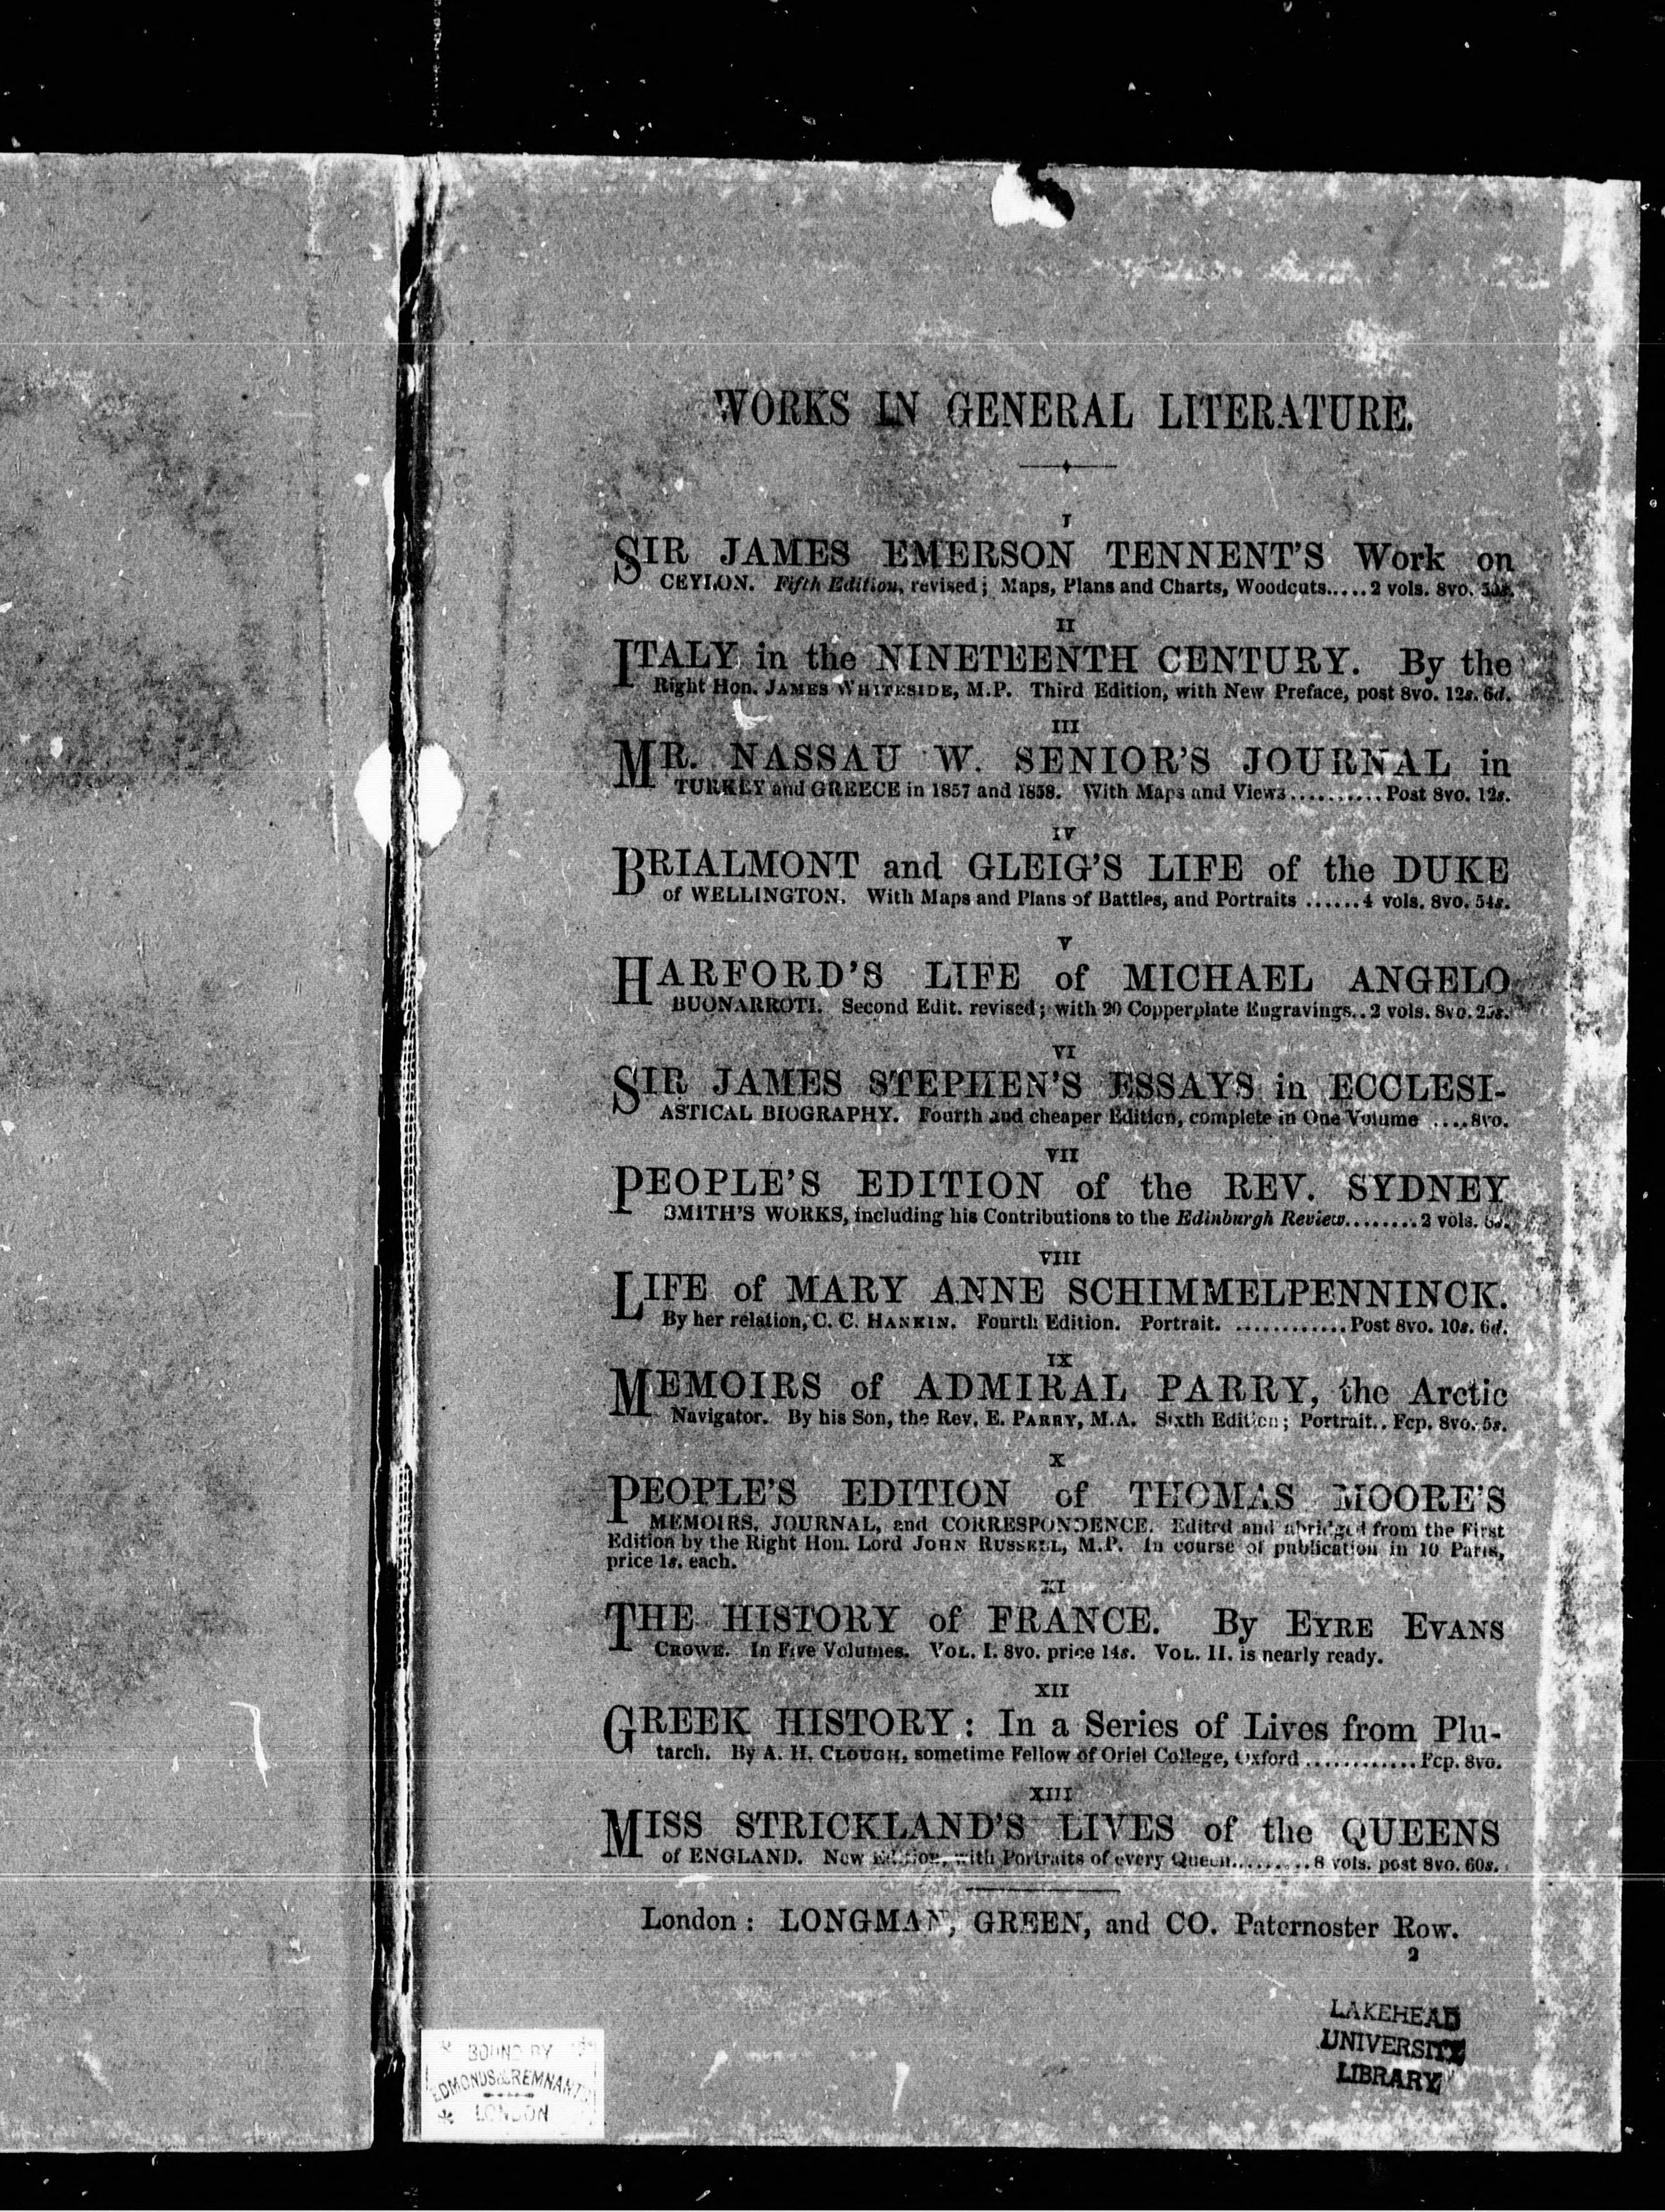 WORKS IN GENERAL LITERATURE.
I
SIR JAMES EMERSON TENNENT'S Work on
CEYLON. Fifth Edition, revised; Maps, Plans and Charts, Woodcuts.....2 vols. 8vo. 50s.
II
ITALY in the NINETEENTH CENTURY. By the
Right Hon. JAMES WHITESIDE, M.P. Third Edition, with New Preface, post 8vo. 12s. 6d.
III
MR. NASSAU W. SENIOR'S JOURNAL in
TURKEY and GREECE in 1857 and 1858. With Maps and Views..........Post 8vo. 12s.
IV
BRIALMONT and GLEIG'S LIFE of the DUKE
of WELLINGTON. With Maps and Plans of Battles, and Portraits ......4 vols. 8vo. 54s.
V
HARFORD'S LIFE of MICHAEL ANGELO
BUONARROTI. Second Edit. revised; with 20 Copperplate Engravings..2 vols. 8vo. 25s.
VI
SIR JAMES STEPHEN'S ESSAYS in ECCLESI-
ASTICAL BIOGRAPHY. Fourth and cheaper Edition, complete in One Volume ....8vo.
VII
PEOPLE'S EDITION of the REV. SYDNEY
SMITH'S WORKS, including his Contributions to the Edinburgh Review........2 vols.
VIII
LIFE of MARY ANNE SCHIMMELPENNINCK.
By her relation, C. C. HANKIN. Fourth Edition. Portrait. ............Post 8vo. 10s. 6d.
IX
MEMOIRS of ADMIRAL PARRY, the Arctic
Navigator. By his Son, the Rev. E. PARRY, M.A. Sixth Edition; Portrait.. Fcp. 8vo. 5s.
X
PEOPLE'S EDITION of THOMAS MOORE'S
MEMOIRS, JOURNAL, and CORRESPONDENCE. Edited and abridged from the First
Edition by the Right Hon. Lord JOHN RUSSELL, M.P. In course of publication in 10 Parts,
price 1s. each.
XI
THE HISTORY of FRANCE. By EYRE EVANS
CROWE. In Five Volumes. VOL. I. 8vo. price 14s. VOL. II. is nearly ready.
XII
GREEK HISTORY: In a Series of Lives from Plu-
tarch. By A. H. CLOUGH, sometime Fellow of Oriel College, Oxford ............Fcp. 8vo.
XIII
MISS STRICKLAND'S LIVES of the QUEENS
of ENGLAND. New Edition, with Portraits of every Queen.........8 vols. post 8vo. 60s.
London: LONGMAN, GREEN, and CO. Paternoster Row.
2
LAKEHEAD
UNIVERSITY
LIBRARY
BOUND BY
EDMONDS & REMNANTS
LONDON